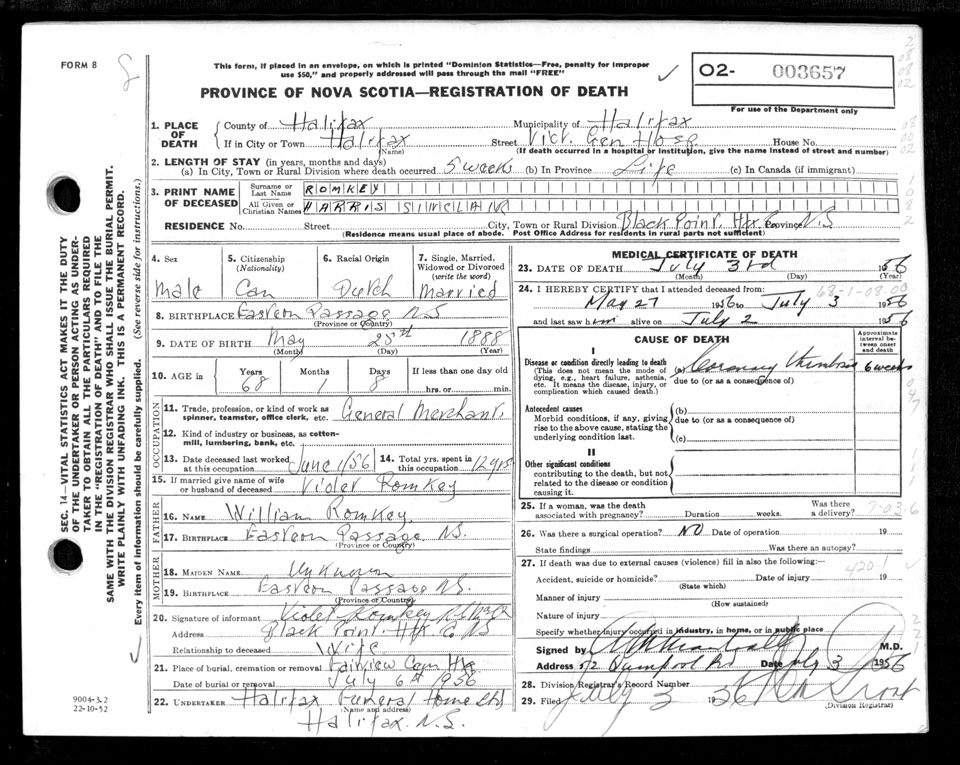 FORM 8
8
This form, if placed in an envelope, on which is printed "Dominion Statistics—Free, penalty for improper
use $50," and properly addressed will pass through the mail "FREE"
PROVINCE OF NOVA SCOTIA—REGISTRATION OF DEATH
02- 003657
For use of the Department only
SEC. 14—VITAL STATISTICS ACT MAKES IT THE DUTY
OF THE UNDERTAKER OR PERSON ACTING AS UNDER-
TAKER TO OBTAIN ALL THE PARTICULARS REQUIRED
IN THE "REGISTRATION OF DEATH" AND TO FILE THE
SAME WITH THE DIVISION REGISTRAR WHO SHALL ISSUE THE BURIAL PERMIT.
WRITE PLAINLY WITH UNFADING INK. THIS IS A PERMANENT RECORD.
Every item of information should be carefully supplied. (See reverse side for instructions.)
1. PLACE OF DEATH
County of Halifax Municipality of Halifax
If in City or Town Halifax Street Vict. Gen Hosp House No.
(Name) (If death occurred in a hospital or institution, give the name instead of street and number)
2. LENGTH OF STAY (in years, months and days)
(a) In City, Town or Rural Division where death occurred 5 weeks (b) In Province Life (c) In Canada (if immigrant)
3. PRINT NAME OF DECEASED
Surname or Last Name ROMKEY
All Given or Christian Names HARRIS SINCLAIR
RESIDENCE No. Street City, Town or Rural Division Black Point, Hfx Co Province N.S
(Residence means usual place of abode. Post Office Address for residents in rural parts not sufficient)
4. Sex
Male
5. Citizenship
(Nationality)
Can
6. Racial Origin
Dutch
7. Single, Married,
Widowed or Divorced
(write the word)
Married
8. BIRTHPLACE Eastern Passage N.S
(Province or Country)
9. DATE OF BIRTH May 25th 1888
(Month) (Day) (Year)
10. AGE in Years Months Days If less than one day old
68 1 8 hrs. or min.
OCCUPATION
11. Trade, profession, or kind of work as
spinner, teamster, office clerk, etc. General Merchant.
12. Kind of industry or business, as cotton-
mill, lumbering, bank, etc.
13. Date deceased last worked
at this occupation June 1/56
14. Total yrs. spent in
this occupation 12 yrs
15. If married give name of wife
or husband of deceased Violet Romkey
FATHER
16. NAME William Romkey.
17. BIRTHPLACE Eastern Passage N.S.
(Province or Country)
MOTHER
18. MAIDEN NAME Unknown
19. BIRTHPLACE Eastern Passage N.S.
(Province or Country)
20. Signature of informant Violet Romkey
Address Black Point. Hfx Co NS
Relationship to deceased Wife
21. Place of burial, cremation or removal Fairview Cem Hfx
Date of burial or removal July 6th 1956
22. UNDERTAKER Halifax Funeral Home Ltd
(Name and address)
Halifax N.S.
9004-3.2
22-10-52
MEDICAL CERTIFICATE OF DEATH
23. DATE OF DEATH July 3rd 1956
(Month) (Day) (Year)
24. I HEREBY CERTIFY that I attended deceased from:
May 27 1956 to July 3 1956
and last saw him alive on July 2 1956
CAUSE OF DEATH
Approximate interval between onset and death
I
Disease or condition directly leading to death
(This does not mean the mode of
dying, e.g., heart failure, asthenia,
etc. It means the disease, injury, or
complication which caused death.)
(a) Coronary Thrombosis 6 weeks
due to (or as a consequence of)
Antecedent causes
Morbid conditions, if any, giving
rise to the above cause, stating the
underlying condition last.
(b)
due to (or as a consequence of)
(c)
II
Other significant conditions
contributing to the death, but not
related to the disease or condition
causing it.
25. If a woman, was the death
associated with pregnancy? Duration weeks. Was there
a delivery?
26. Was there a surgical operation? NO Date of operation 19
State findings Was there an autopsy?
27. If death was due to external causes (violence) fill in also the following:—
420.1
Accident, suicide or homicide? Date of injury 19
(State which)
Manner of injury
(How sustained)
Nature of injury
Specify whether injury occurred in industry, in home, or in public place
Signed by M.D.
Address Date July 3 1956
28. Division Registrar's Record Number
29. Filed July 3 1956
(Division Registrar)